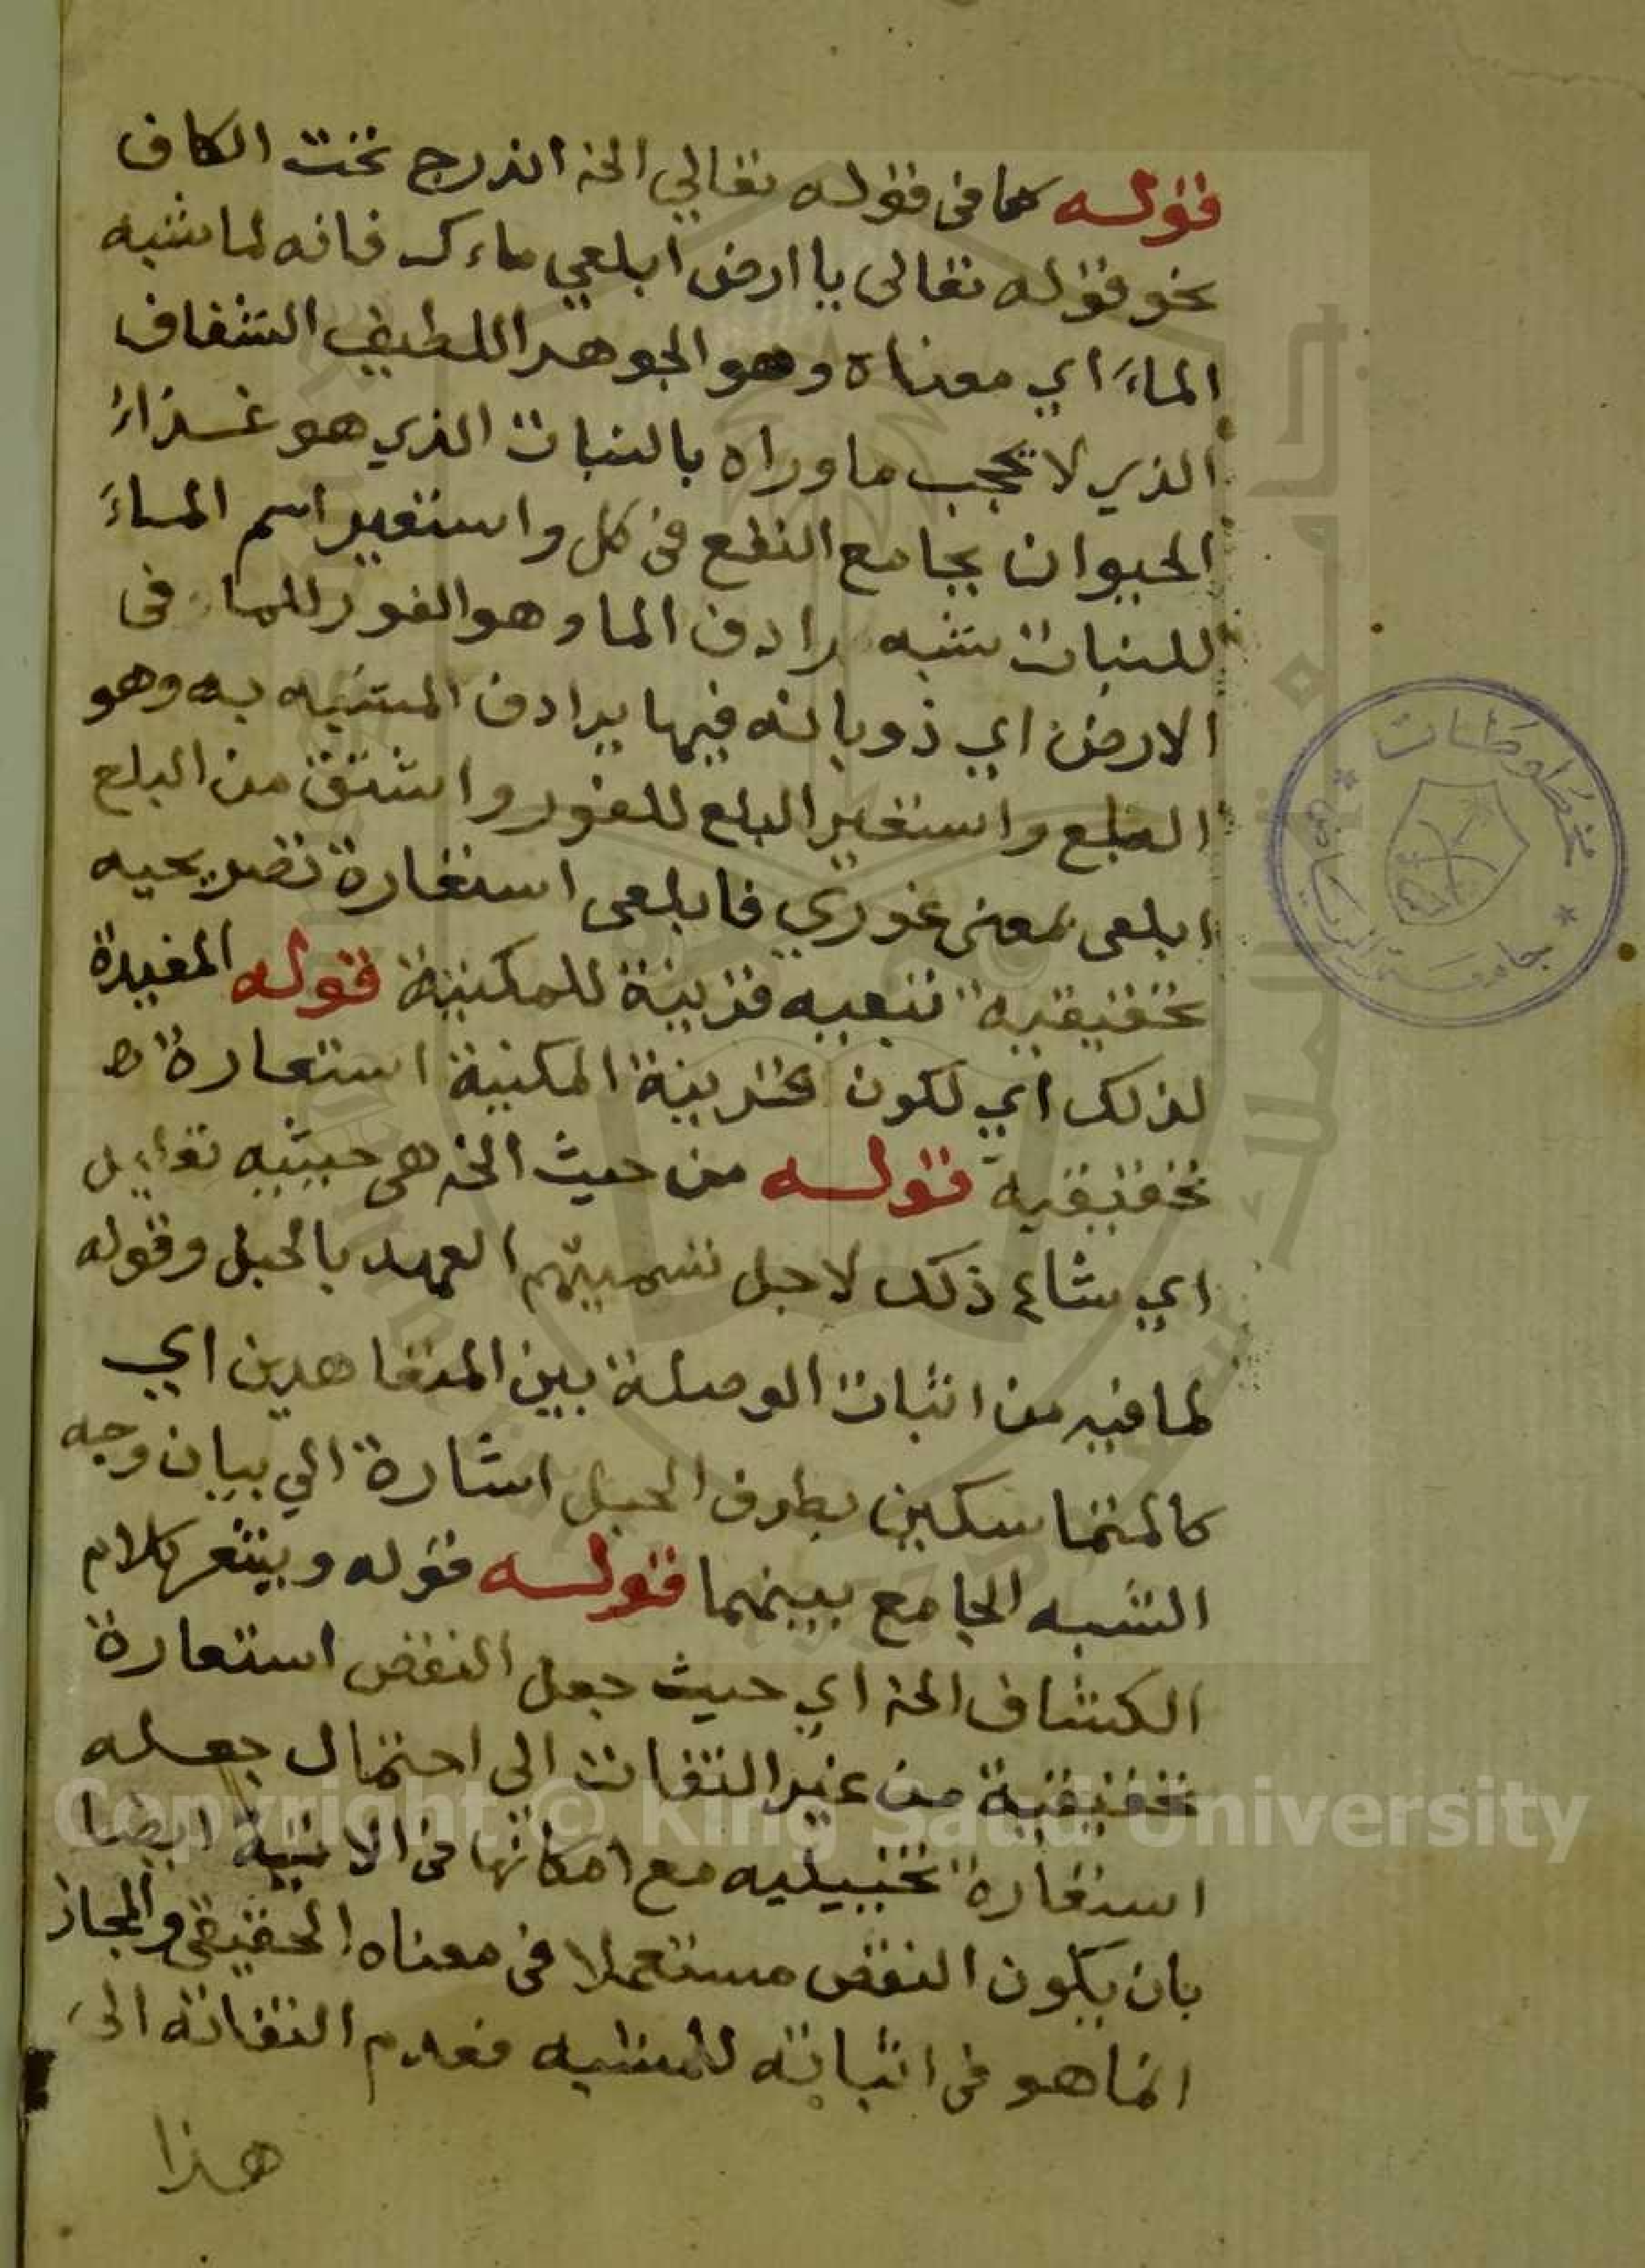 قوله كما في قوله تعالي الخ اندرج تحت الكاف
نحو قوله تعالى يا ارض ابلعي ماءك فانه لما شبه
الماءَ اي معناه وهو الجوهر اللطيف الشفاف
الذي لا يحجب ما وراه بالنبات الذي هو غذاءُ
الحيوان بجامع النفع في كل واستعير اسم الماءَ
للنبات شبه رادف الما وهو الغور للماء في
الارض اي ذوبانه فيها برادف المشبه به وهو
البلع واستعير البلع للغور واشتق من البلع
ابلعى بمعنى غوري فابلعى استعارة تصريحيه
تحقيقيه تبعيه قرينة للمكنية قوله المفيدة
لذلك اي لكون قرينة المكنية استعارة
تحقيقية قوله من حيث الخ هي حيثيه تعليل
اي شاع ذلك لاجل تسميتهم العهد بالحبل وقوله
لما فيه من اثبات الوصلة بين المتعاهدين اي
كالمتماسكين بطرف الحبل اشارة الي بيان وجه
الشبه الجامع بينهما قوله قوله ويشعر كلام
الكشاف الخ اي حيث جعل النقض استعارة
تحقيقية من غير التفات الى احتمال جعله
استعارة تخييليه مع امكانها في الاية ايضا
بان يكون النقض مستعملا في معناه الحقيقي والمجاز
انما هو في اثباته للمشبه فعدم التفاته الى
هذا
مخطوطات
جامعة الرياض
جامعة الملك سعود
Copyright © King Saud University
1957